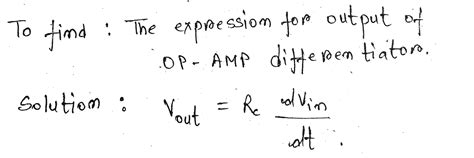 To find : The expression for output of
OP-AMP differentiator.
Solution : Vout = Rc dVin
dt .